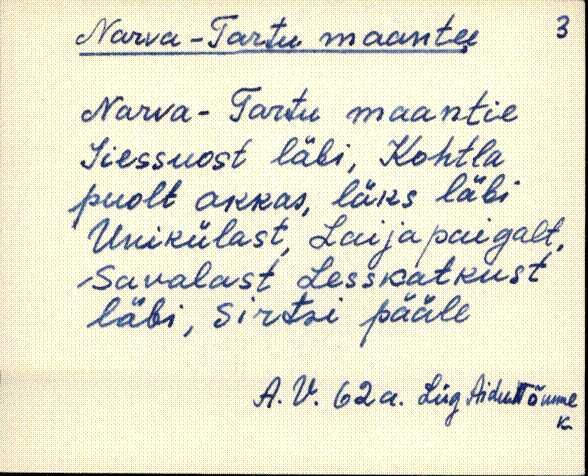 Narva-Tartu maantee
3
Narva-Tartu maantie
Siessuost läbi, Kohtla
puolt akkas, läks läbi
Unikülast, Laijapaigalt,
Savalast Lesskatkust
läbi, Sirtsi pääle
A. V. 62 a. Lüg Aidu Tõnume
k